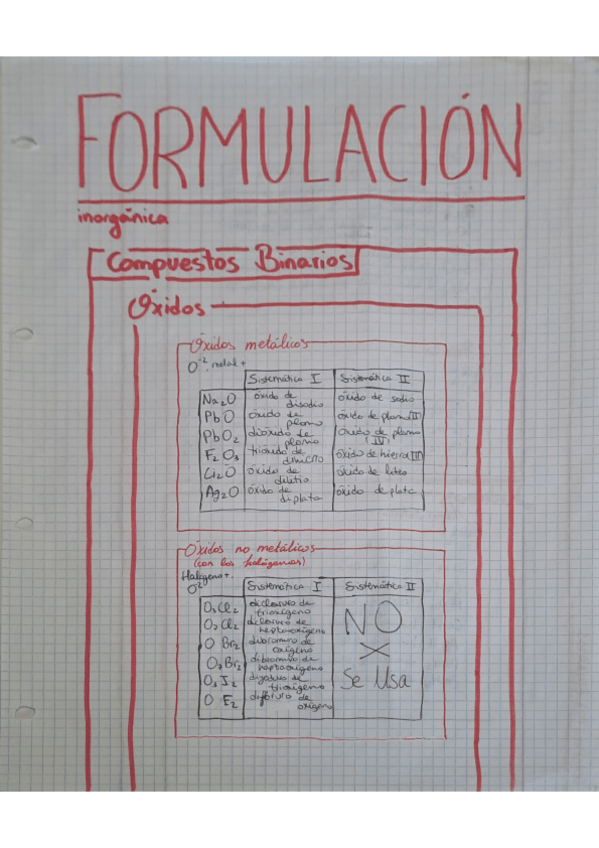 FORMULACIÓN
inorgánica
Compuestos Binarios
Óxidos
Óxidos metálicos
O⁻² metal +
Sistemática I Sistemática II
Na₂O óxido de disodio óxido de sodio
PbO óxido de plomo óxido de plomo(II)
PbO₂ dióxido de plomo óxido de plomo (IV)
F₂O₃ trióxido de óxido de hierro(III)
Li₂O óxido de dilitio óxido de liteo
Ag₂O óxido de diplata óxido de plata
Óxidos no metálicos
(con los halógenos)
Halógeno +
O⁻²
Sistemática I Sistemática II
O₃Cl₂ dicloruro de trioxígeno
O₇Cl₂ dicloruro de heptaoxígeno
O Br₂ dibromuro de oxígeno
O₇Br₂ dibromuro de heptaoxígeno
O₃I₂ diyoduro de trioxígeno
O F₂ difloruro de oxígeno
NO
X
Se Usa